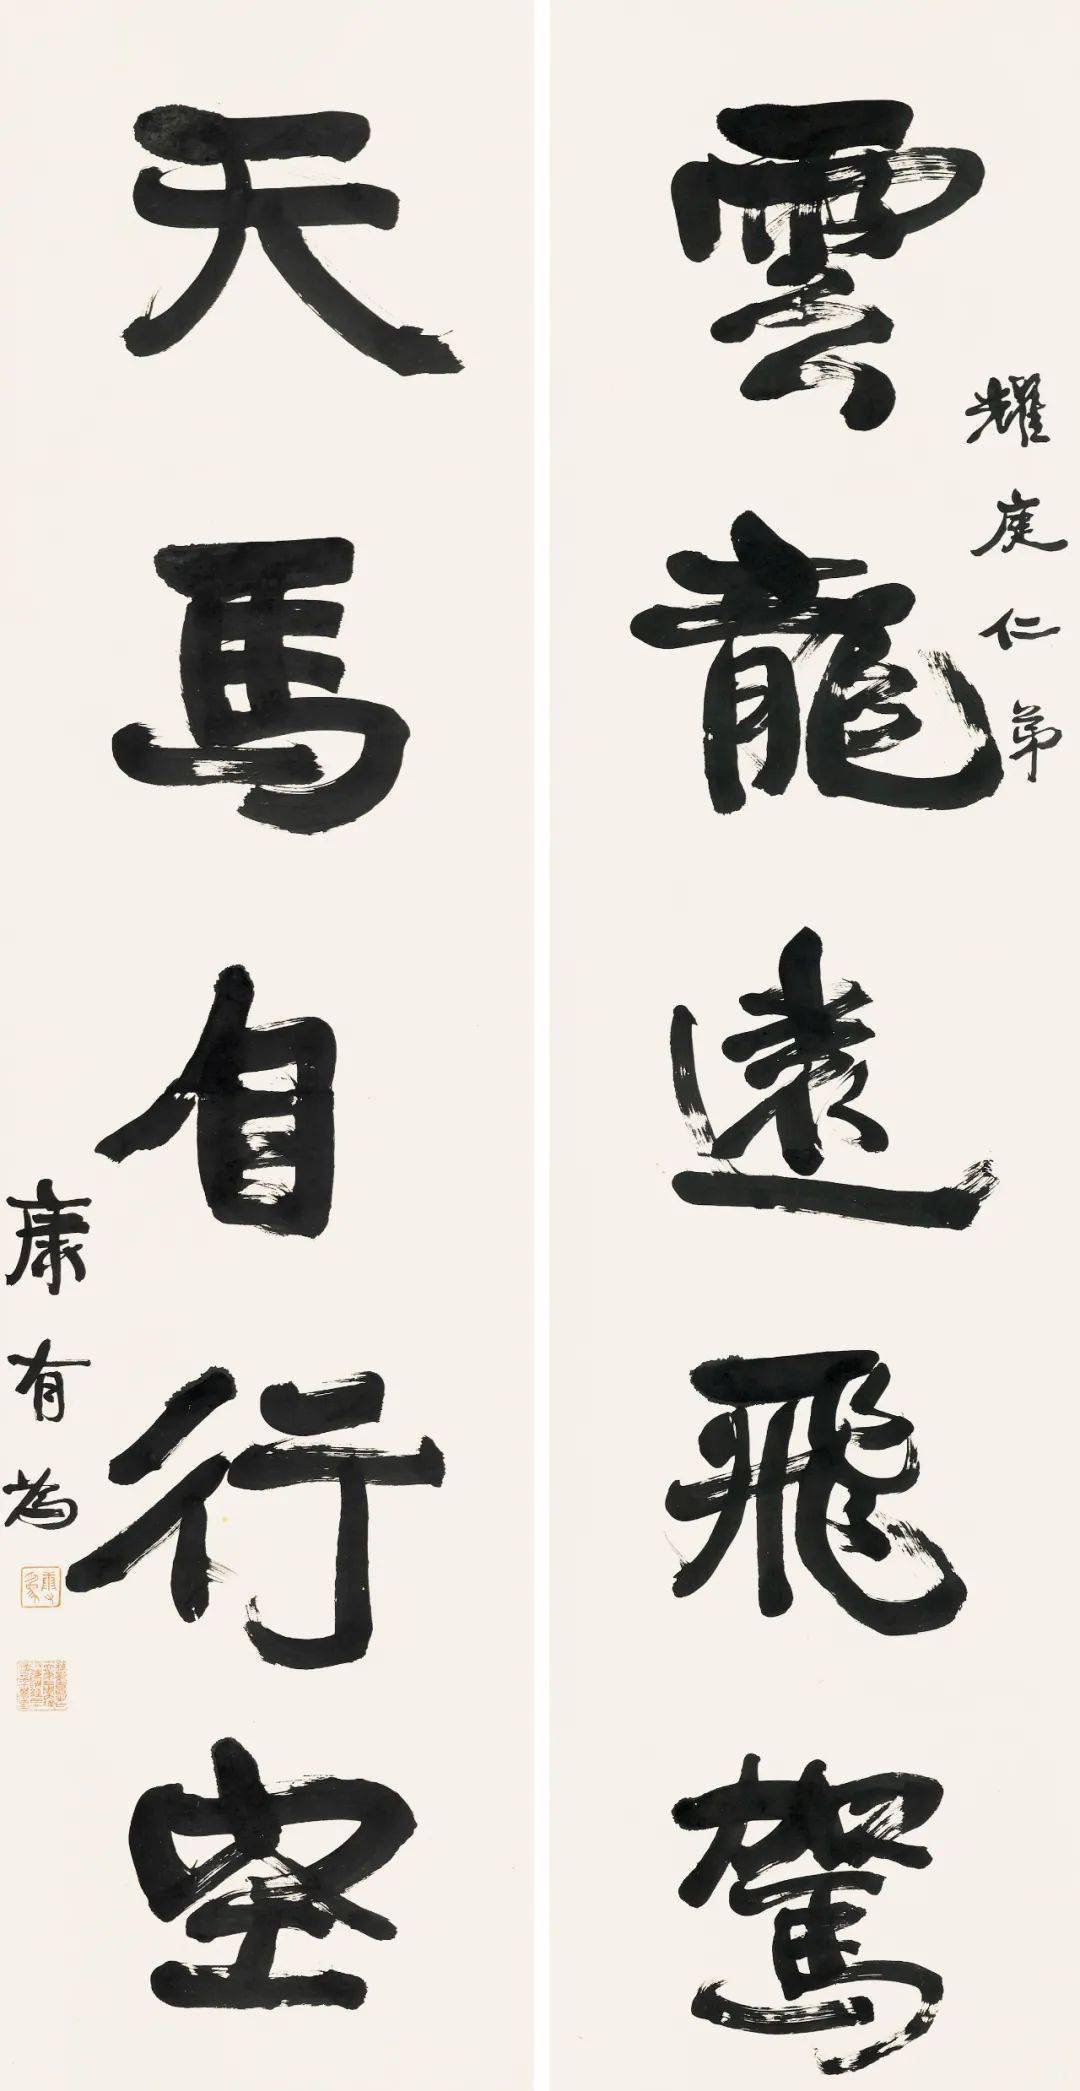 雲龍遠飛駕
耀庚仁弟
天馬自行空
康有為